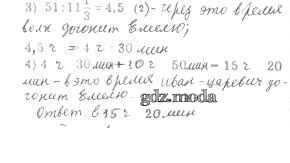 3) 51:11 1/3 = 4,5 (ч) - через это время
волк догонит Емелю;
4,5 ч = 4 ч 30 мин
4) 4 ч 30 мин + 10 ч 50 мин = 15 ч 20
мин - в это время Иван-царевич до-
гонит Емелю.
gdz.moda
Ответ: в 15 ч 20 мин